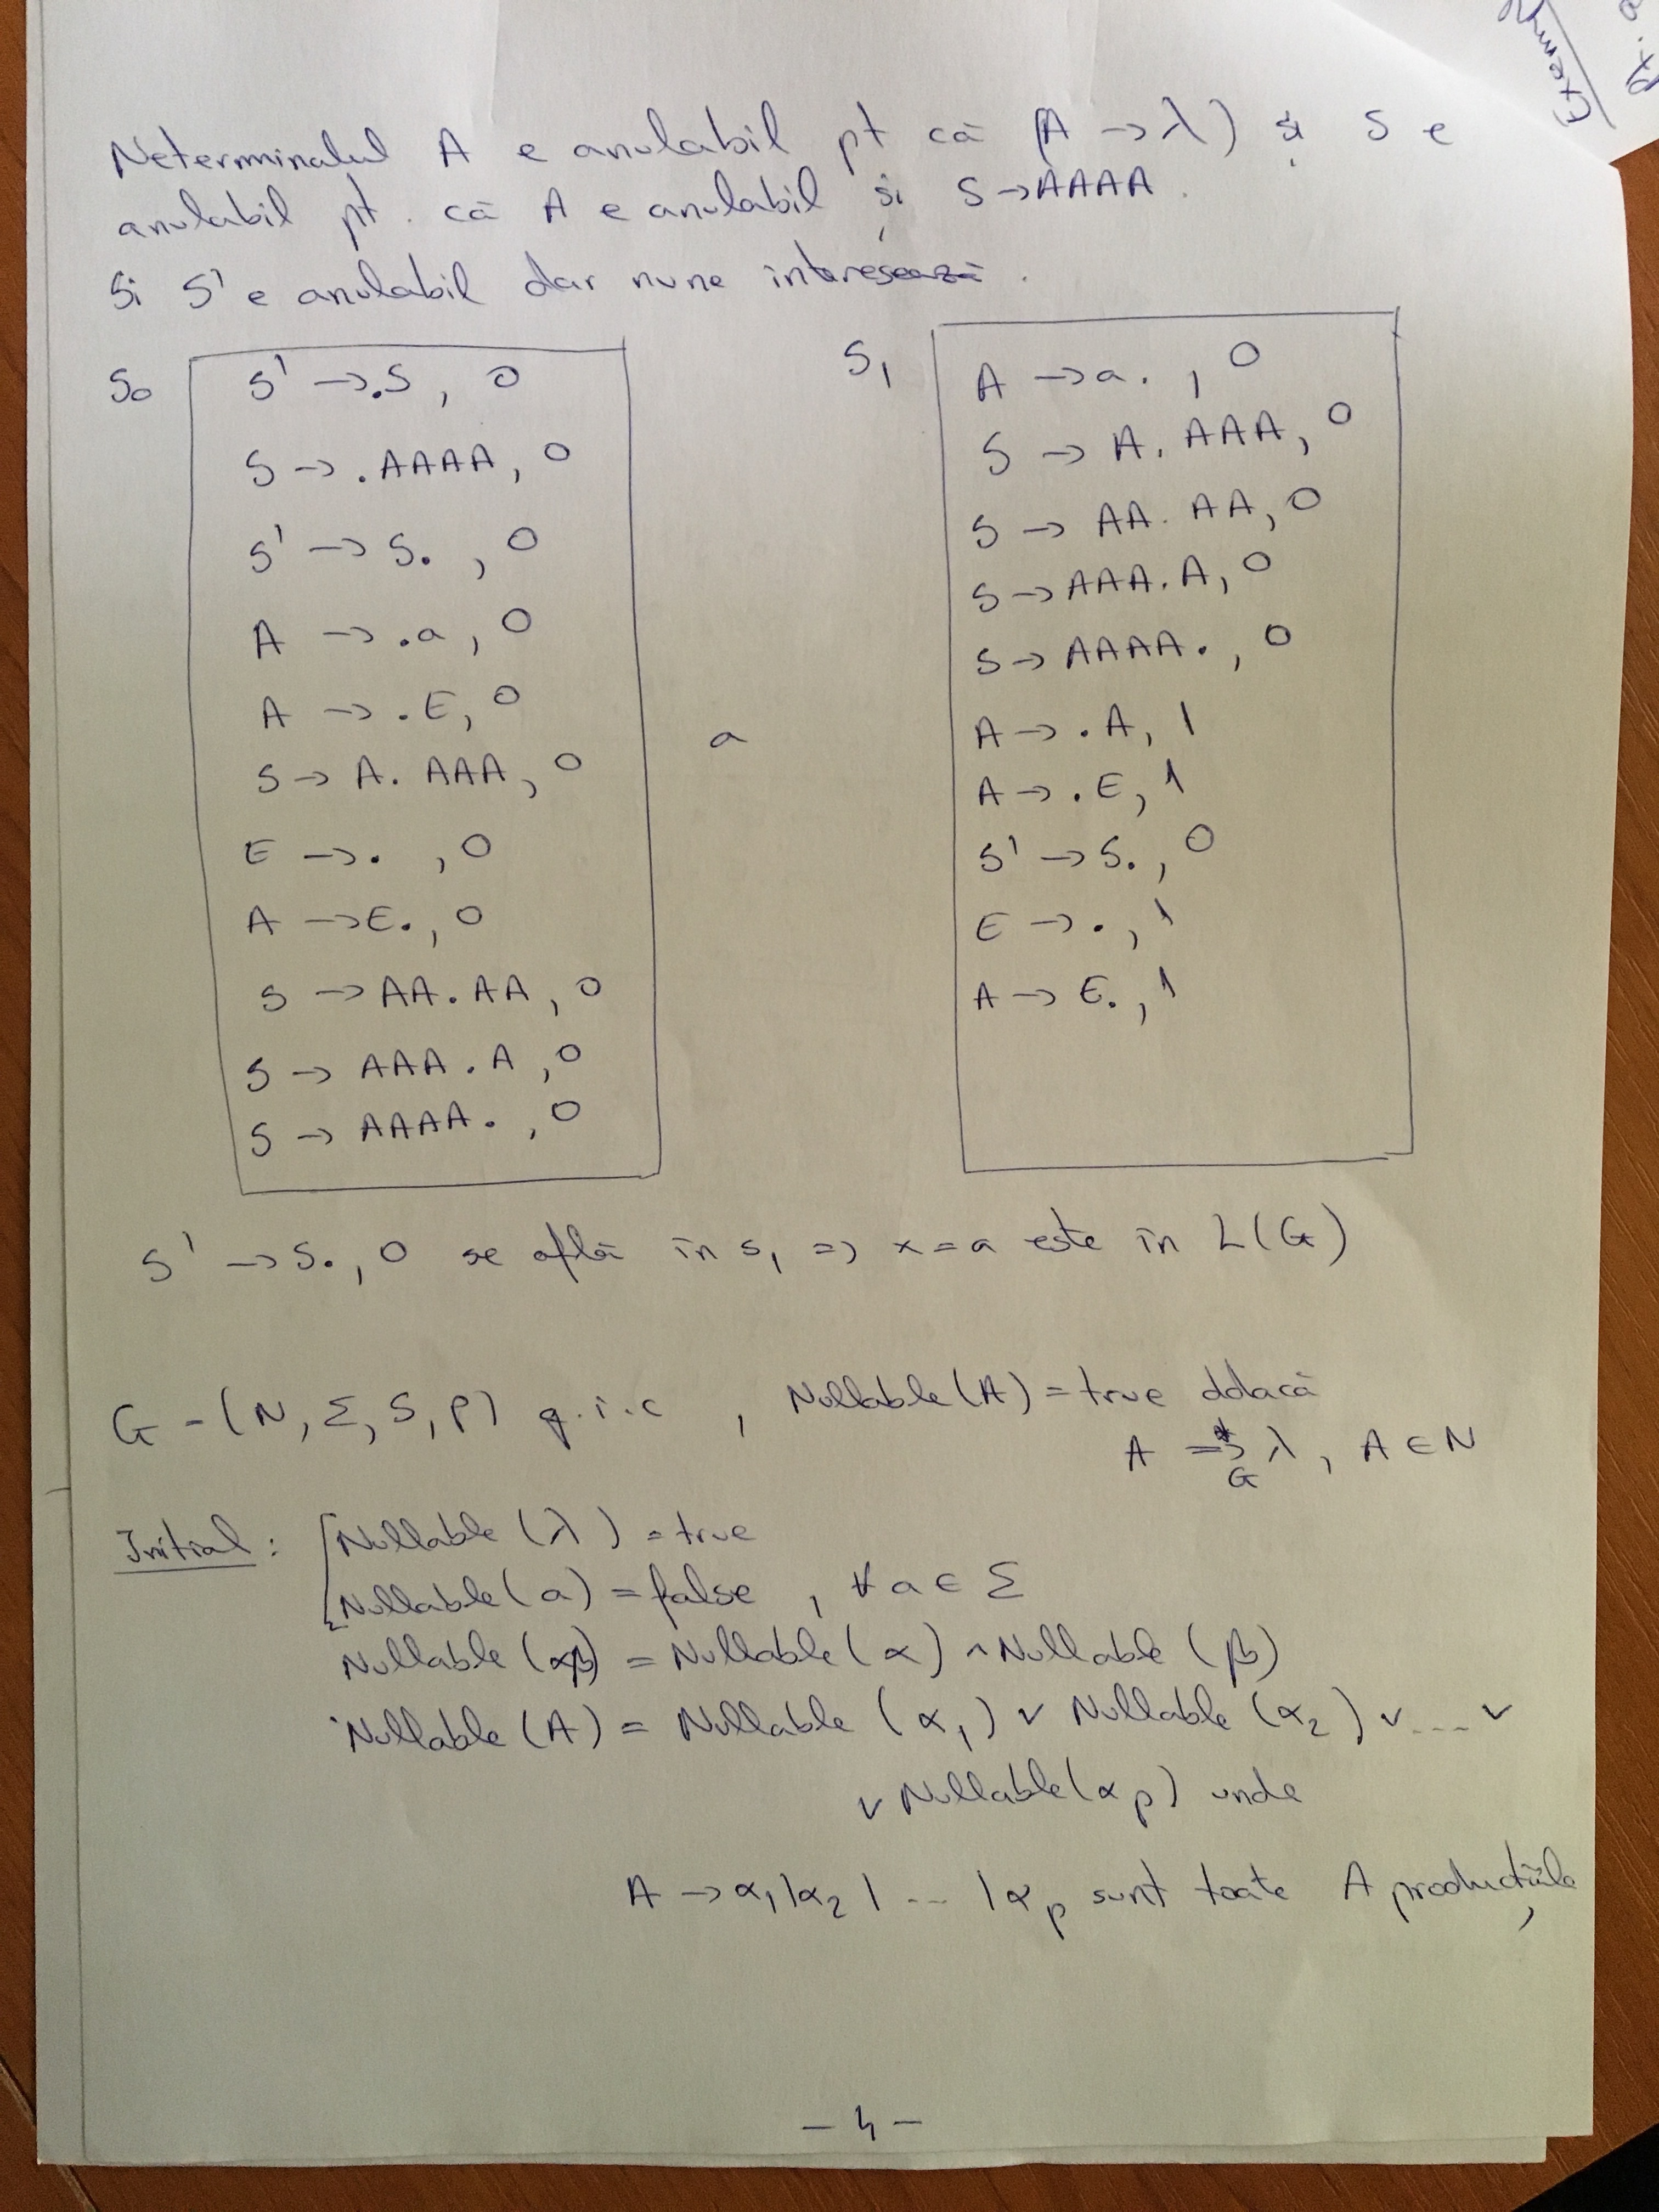 Exem
Neterminalul A e anulabil pt că (A → λ) și S e
anulabil pt. că A e anulabil și S → AAAA.
Si S' e anulabil dar nu ne interesează.
S₀
S' → .S , 0
S → .AAAA , 0
S' → S. , 0
A → .a , 0
A → .E, 0
S → A. AAA, 0
E → . , 0
A → E. , 0
S → AA.AA , 0
S → AAA.A , 0
S → AAAA. , 0
a
S₁
A → a. , 0
S → A. AAA, 0
S → AA. AA, 0
S → AAA.A, 0
S → AAAA. , 0
A → .A, 1
A → .E, 1
S' → S. , 0
E → . , 1
A → E. , 1
S' → S. , 0 se află în s₁ => x = a este în L(G)
G = (N, Σ, S, P) g.i.c , Nullable(A) = true ddacă
A =*>G λ , A ∈ N
Initial : Nullable (λ) = true
Nullable (a) = false , ∀ a ∈ Σ
Nullable (αβ) = Nullable (α) ∧ Nullable (β)
Nullable (A) = Nullable (α₁) ∨ Nullable (α₂) ∨ .... ∨
∨ Nullable (αp) unde
A → α₁ | α₂ | ... | αp sunt toate A producțiile
- 4 -